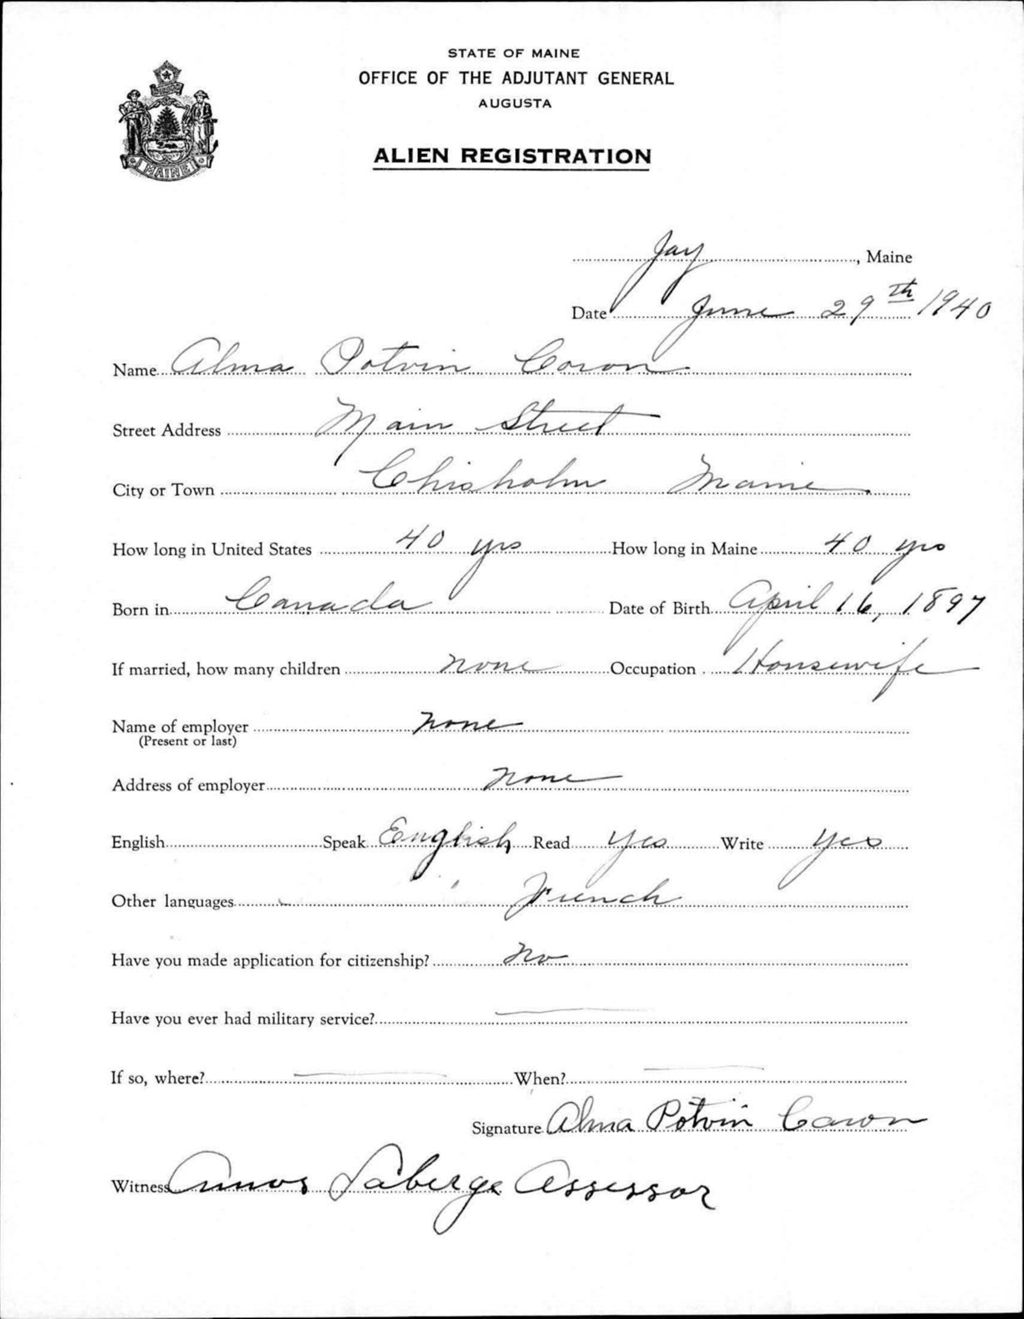 STATE OF MAINE
OFFICE OF THE ADJUTANT GENERAL
AUGUSTA
ALIEN REGISTRATION
MAINE
Jay, Maine
Date June 29th 1940
Name Alma Potvin Caron
Street Address Main Street
City or Town Chisholm Maine
How long in United States 40 yrs How long in Maine 40 yrs
Born in Canada Date of Birth April 16, 1897
If married, how many children none Occupation Housewife
Name of employer none
(Present or last)
Address of employer none
English Speak English Read yes Write yes
Other languages French
Have you made application for citizenship? No
Have you ever had military service?
If so, where? When?
Signature Alma Potvin Caron
Witness Amos Laberge Assessor